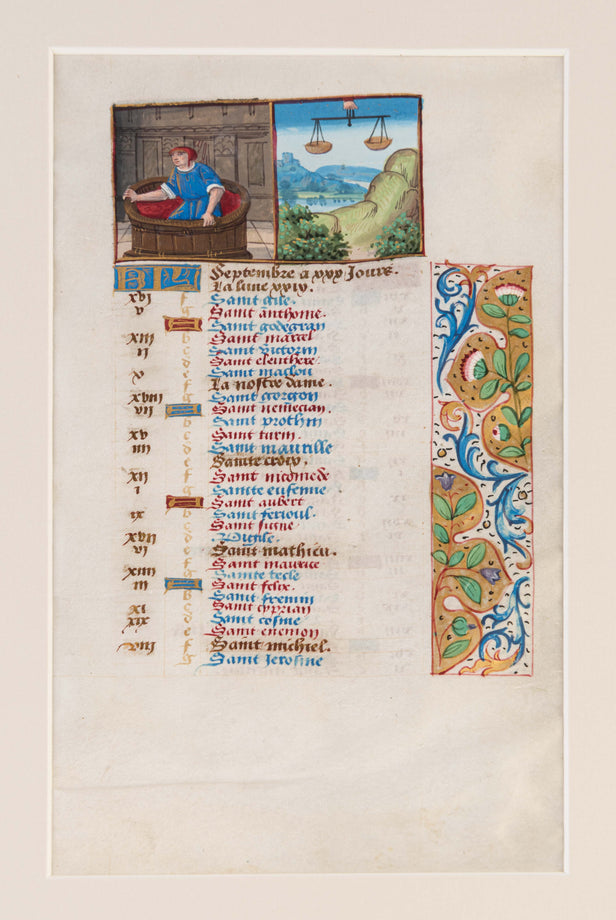 KL Septembre a xxx Jours.
La lune xxix.
xvi f Saint gile.
v g Saint anthoine.
A Saint godegran
xiii b Saint marcel
ii c Saint victorin
d Saint eleuthere.
x e Saint maclou
f La nostre dame.
xviii g Saint gorgon
vii A Saint
b Saint prothin
xv c Saint turin.
iiii d Saint maurille
e Sainte croix.
xii f Saint nicomede
i g Sainte eufemie
A Saint aubert
ix b Saint ferioul.
c Saint signe
xvii d Vigile.
vi e Saint mathieu.
f Saint maurice
xiiii g Sainte tecle
iii A Saint felix.
b Saint fremin
xi c Saint cyprian
xix d Saint cosme
e Saint
viii f Saint michiel.
g Saint Jerosme